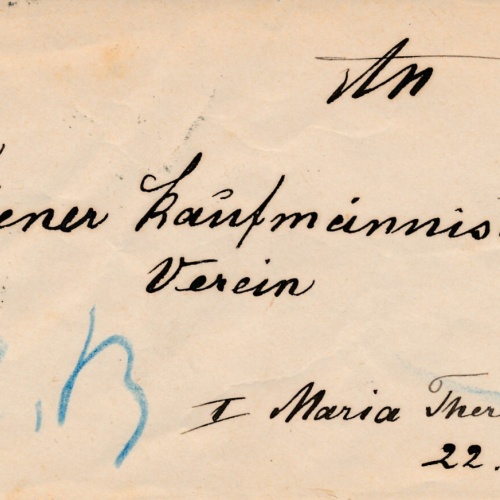 An
ener Kaufmännis
Verein
I Maria Ther
22.